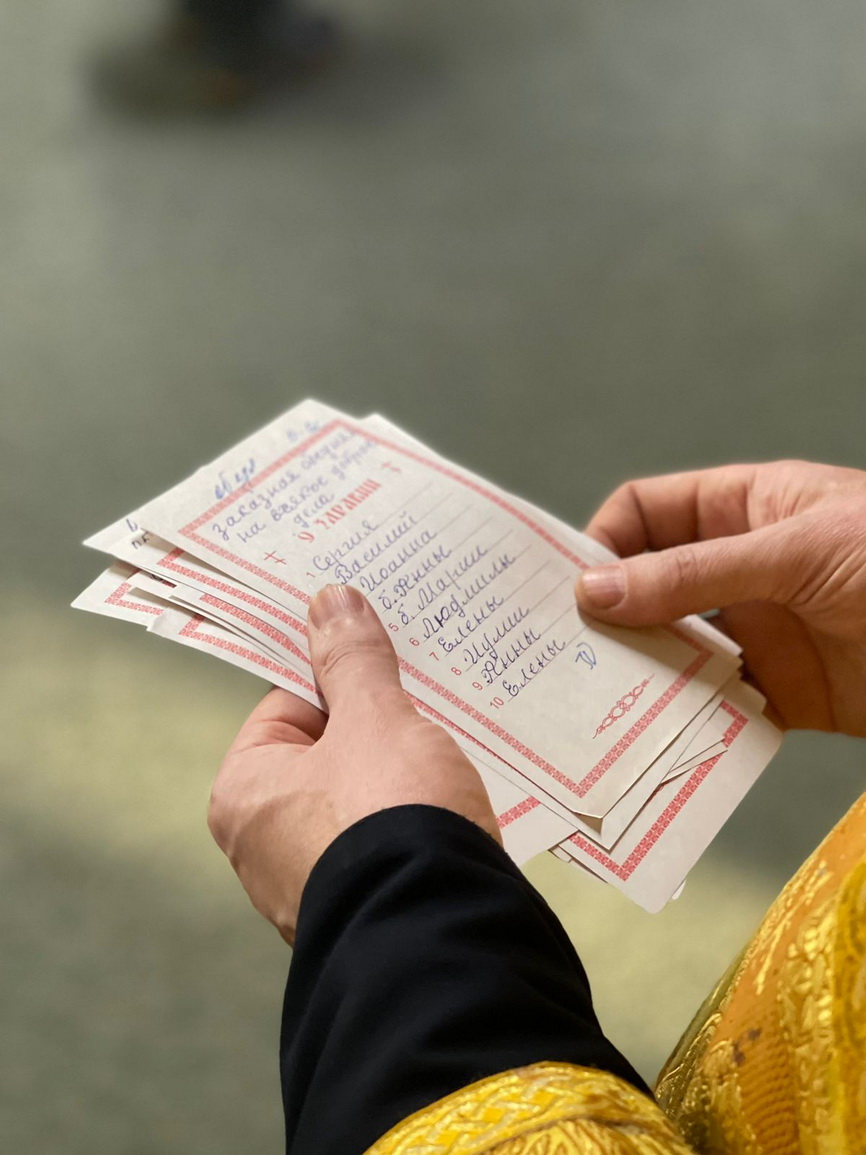 заказная обедня
на всякое доброе
дела
О ЗДРАВИИ
1 Сергия
Василия
Иоанна
б. Анны
5 б. Марии
6 Людмилы
7 Елены
8 Иулии
9 Анны
10 Елены